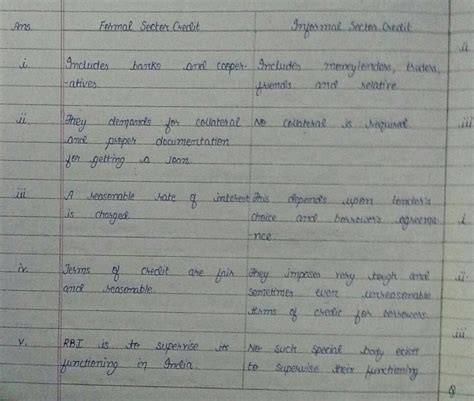 Ans. Formal Sector Credit Informal Sector Credit
i. Includes banks and cooper- Includes moneylenders, traders,
-atives. friends and relative
ii. They demands for collateral No collateral is required.
and proper documentation
for getting a loan.
iii A reasonable rate of interest This depends upon lender's
is charged choice and borrower's agreeme-
-nce
iv. Terms of credit are fair They imposes very tough and
and reasonable. sometimes even unreasonable
terms of credit for borrowers.
v. RBI is to supervise its No such special body exists
functioning in India. to supervise their functioning
ii
iii
i
ii.
iii